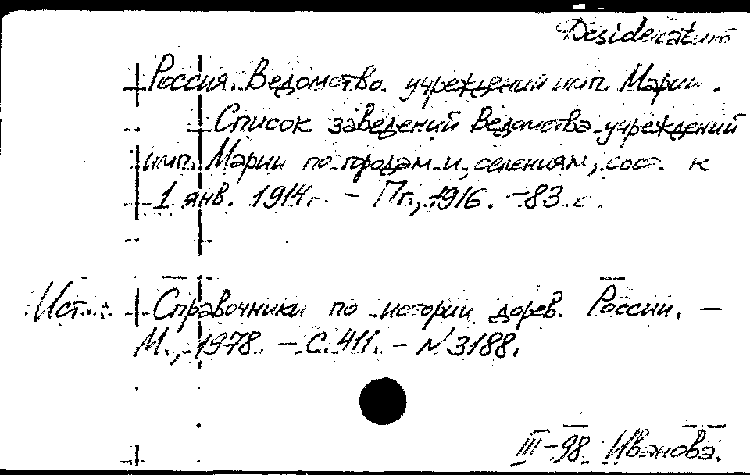 Desideratum
Россия. Ведомство учреждений имп. Марии.
Список заведений Ведомства учреждений
имп. Марии по городам и селениям, сост. к
1 янв. 1914 г. - Пг., 1916. - 83 с.
Ист.: Справочники по истории дорев. России. -
М., 1978. - С. 411. - N 3188.
III-98. Иванова.